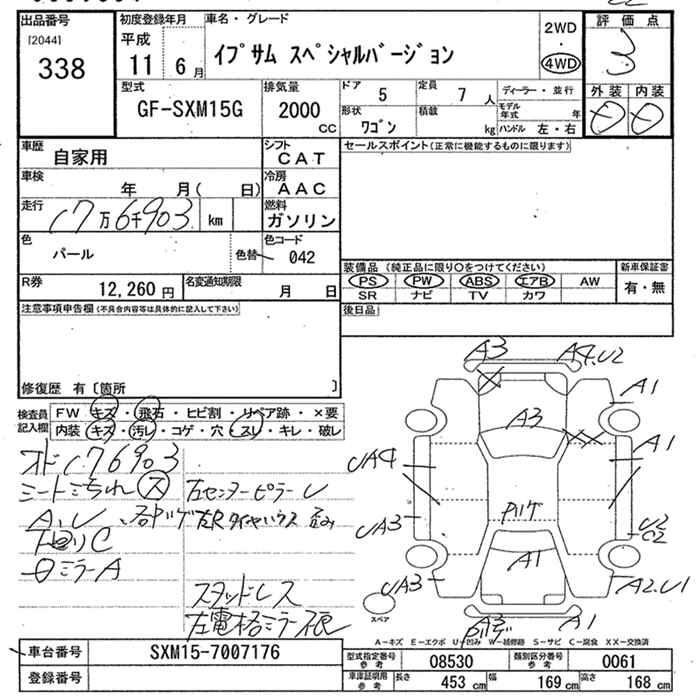 出品番号
[2044]
338
初度登録年月
平成
11 6月
車名・グレード
イプサム スペシャルバージョン
2WD
・
4WD
評価点
3
外装 内装
型式
GF-SXM15G
排気量
2000
CC
ドア
5
定員
7 人
ディーラー・並行
形状
ワゴン
積載
kg
モデル年式 年
ハンドル 左・右
車歴
自家用
シフト
CAT
車検
年 月( 日)
冷房
AAC
走行
17万6千903 km
燃料
ガソリン
色
パール
色替
色コード
042
R券
12,260円
名変通知期限
月 日
セールスポイント(正常に機能するものに限ります)
装備品(純正品に限り○をつけてください)
新車保証書
PS PW ABS エアB AW
SR ナビ TV カワ
有・無
後日品
注意事項申告欄(不具合内容等は具体的に記入して下さい)
修復歴 有〔箇所 〕
検査員記入欄
FW キズ・飛石・ヒビ割・リペア跡・×要
内装 キズ・汚レ・コゲ・穴・スレ・キレ・破レ
176903
A.U
ミラーA
左センターピラーU
スタッドレス
左電格ミラー
A3
A4.U2
A1
A3
A1
UA4
UA3
U2
C2
A1
UA3
A2.U1
A3
A1
スペア
A-キズ E-エクボ U-凹み W-補修跡 S-サビ C-腐食 XX-交換済
車台番号
SXM15-7007176
登録番号
型式指定番号参考
08530
類別区分番号参考
0061
車庫証明用参考
長さ 453 cm
幅 169 cm
高さ 168 cm